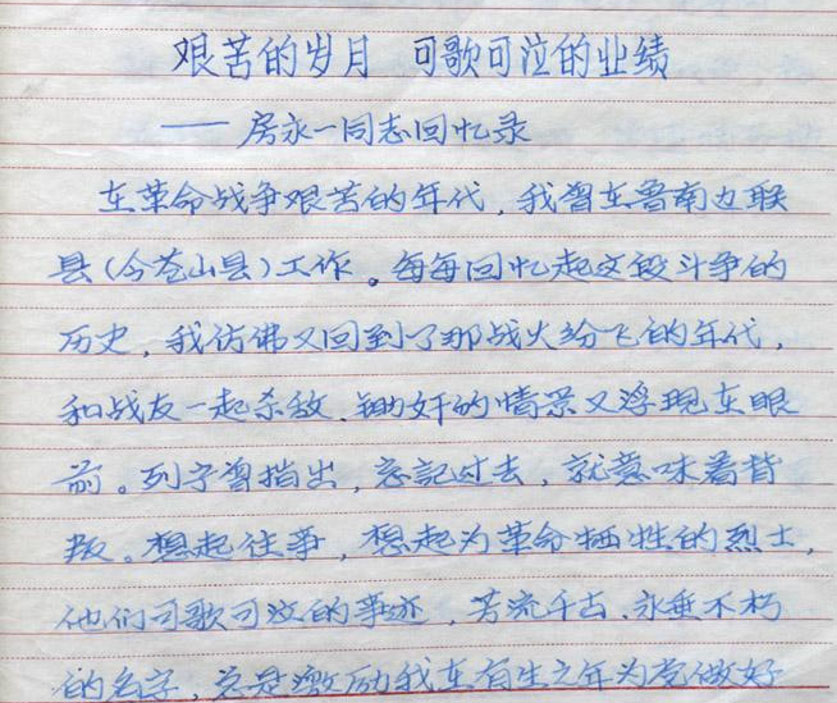 艰苦的岁月 可歌可泣的业绩
—— 房永一同志回忆录
在革命战争艰苦的年代，我曾在鲁南边联
县（今苍山县）工作。每每回忆起这段斗争的
历史，我仿佛又回到了那战火纷飞的年代，
和战友一起杀敌、锄奸的情景又浮现在眼
前。列宁曾指出，忘記过去，就意味着背
叛。想起往事，想起为革命牺牲的烈士，
他们可歌可泣的事迹，芳流千古、永垂不朽
的名字，总是激励我在有生之年为党做好